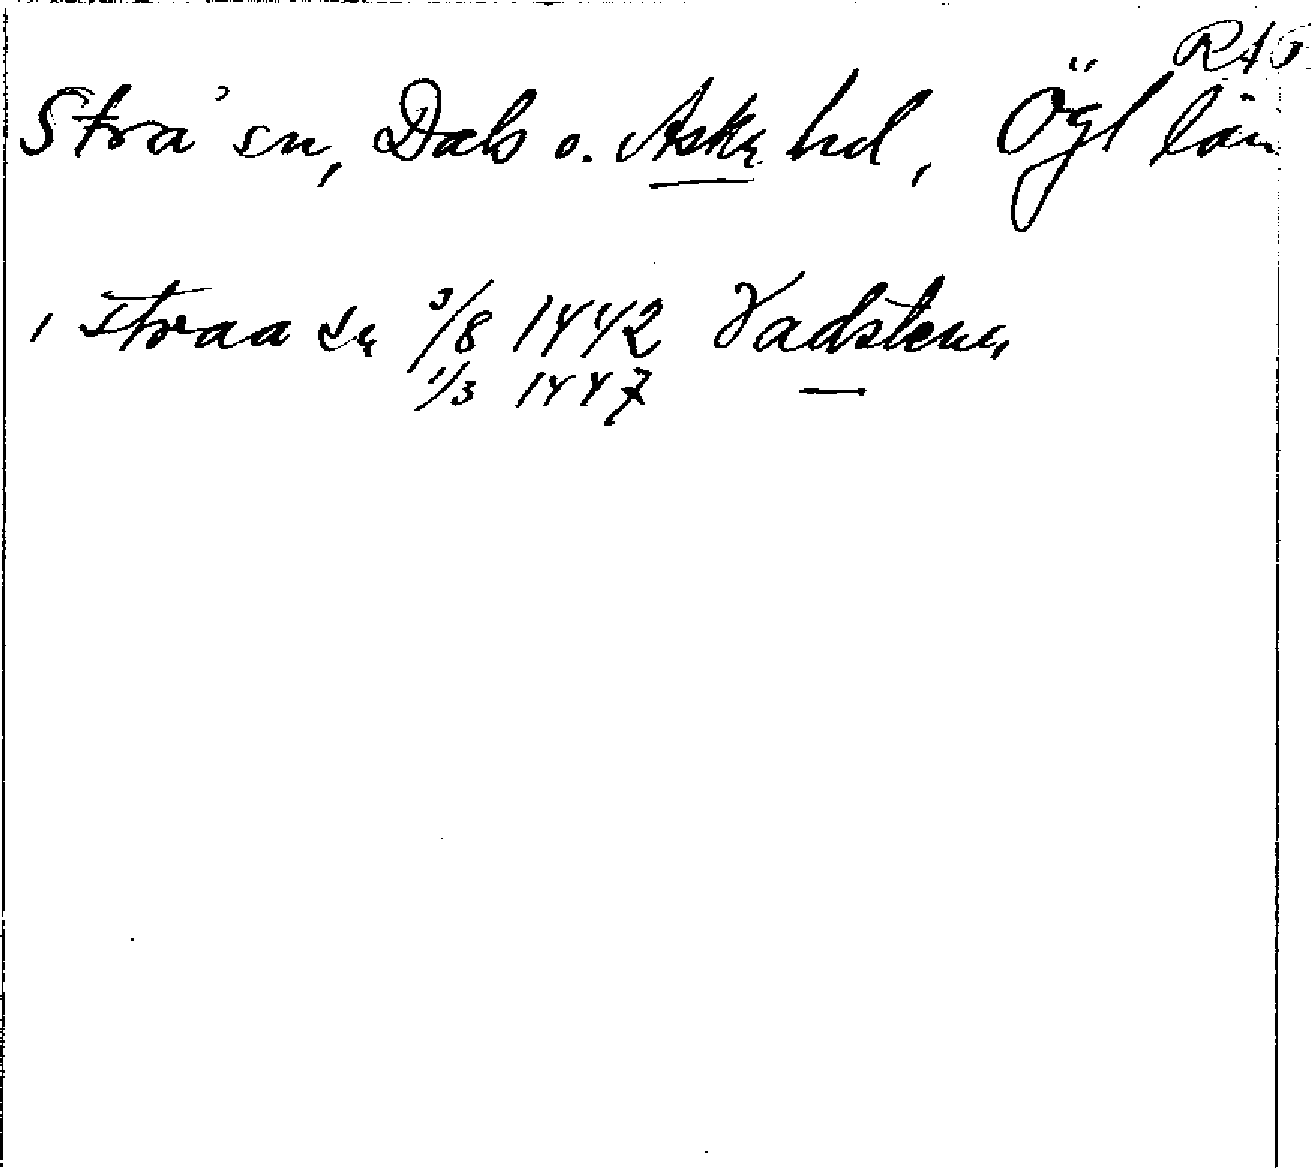 RAP
Strå sn, Dals o. Aska hd, Ögl län
i straa sn 3/8 1442 Vadstena
1/3 1447 —